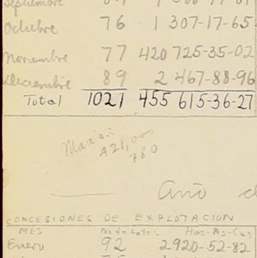 Octubre 76 1 307-17-65
Noviembre 77 420 725-35-02
Diciembre 89 2 467-88-96
Total 1021 455 615-36-27
780
Año
CONCESIONES DE EXPLOTACION
MES No de Lotes Has-As-Cas
Enero 92 2920-52-82